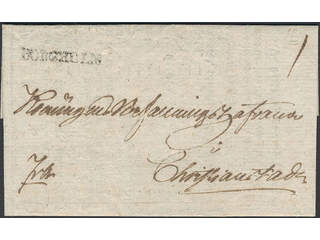 BORGHOLM
/
Konungens Befallningshafvande
i
Christianstad